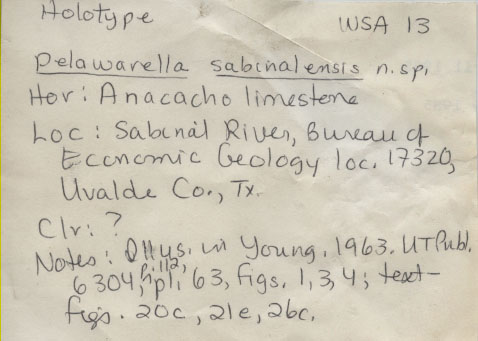 Holotype WSA 13
Delawarella sabinalensis n.sp.
Hor: Anacacho limestone
Loc: Sabinal River, Bureau of
Economic Geology loc. 17320,
Uvalde Co., Tx.
Clr: ?
Notes: Illus. in Young, 1963. UT Publ.
6304, p. 112, pl. 63, figs. 1, 3, 4; text-
figs. 20c, 21e, 26c.